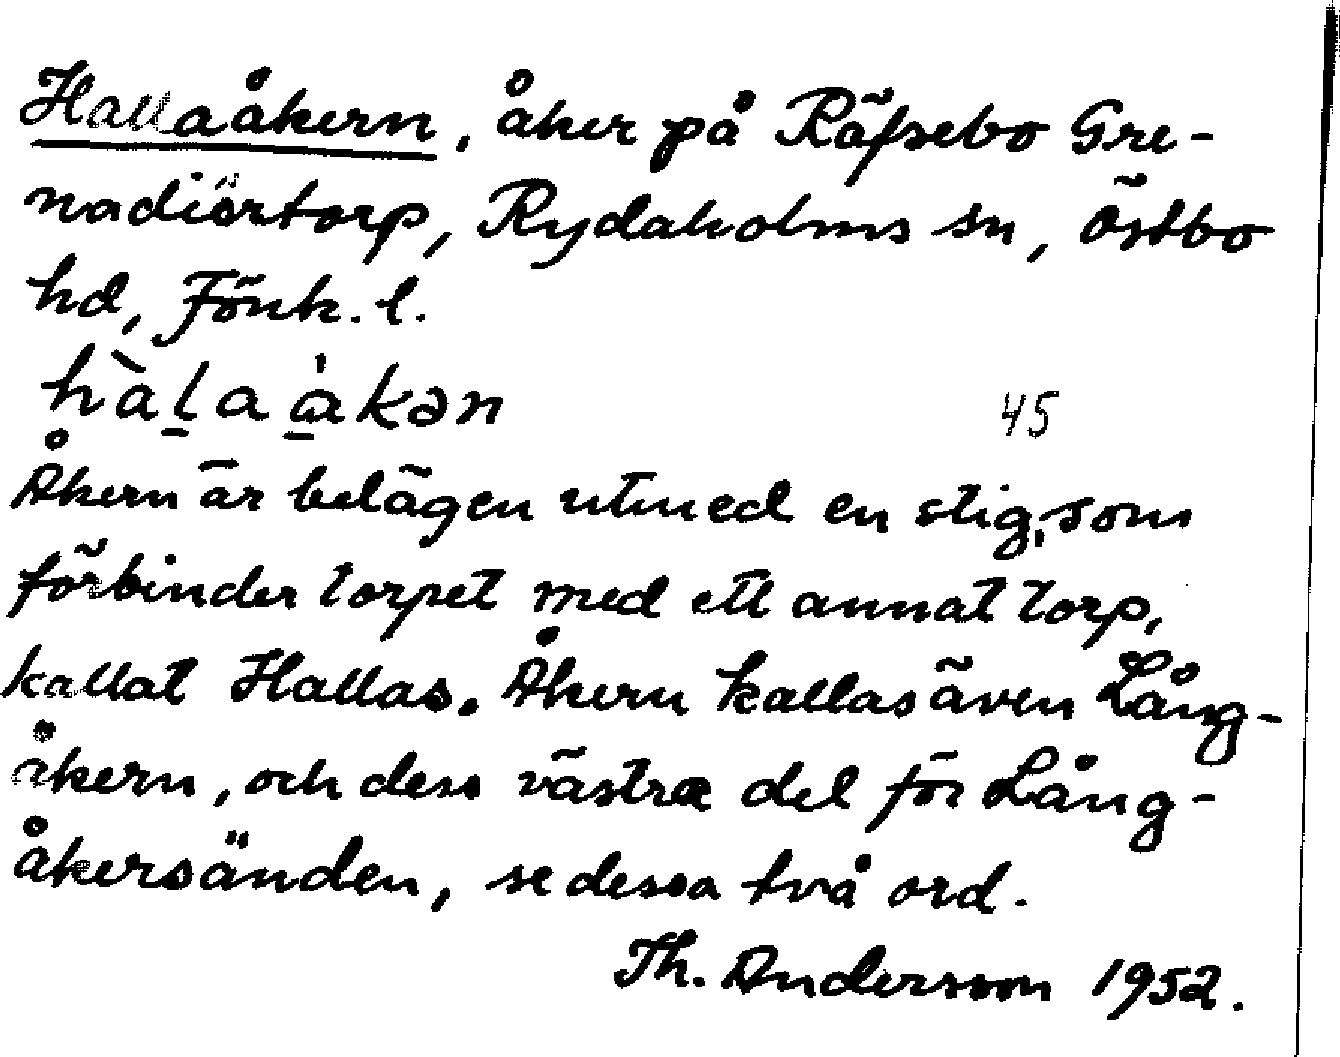 Hallaåkern, åker på Räfsebo Gre-
nadiärtorp, Rydaholms sn, Östbo
hd, Jönk. l.
hàl̠a a̠̍kən
45
Åkern är belägen utmed en stig, som
förbinder torpet med ett annat torp,
kallat Hallas. Åkern kallas även Lång-
åkern, och dess västra del för Lång-
åkersänden, se dessa två ord.
Th. Andersson 1952.